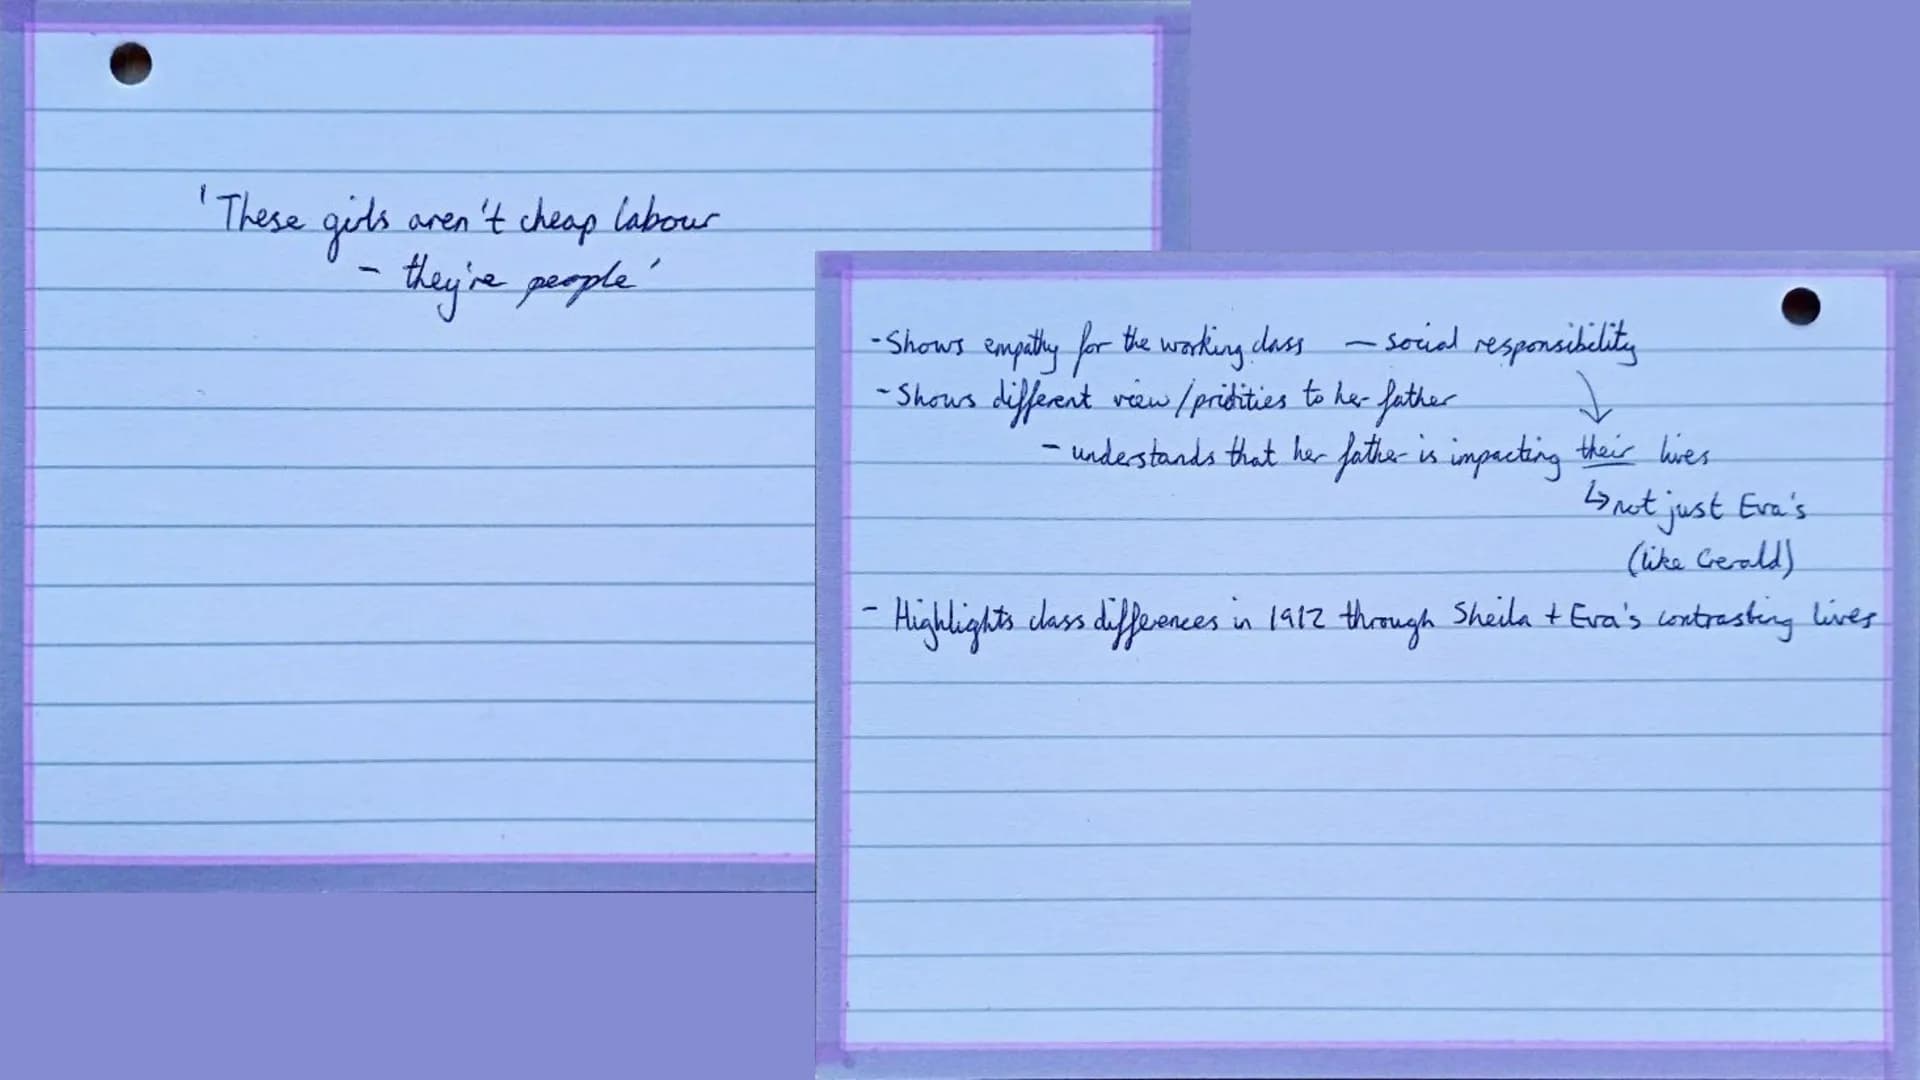 'These girls aren't cheap labour
- they're people'
- Shows empathy for the working class — social responsibility
- Shows different view/priorities to her father
- understands that her father is impacting their lives
↳ not just Eva's
(like Gerald)
- Highlights class differences in 1912 through Sheila + Eva's contrasting lives